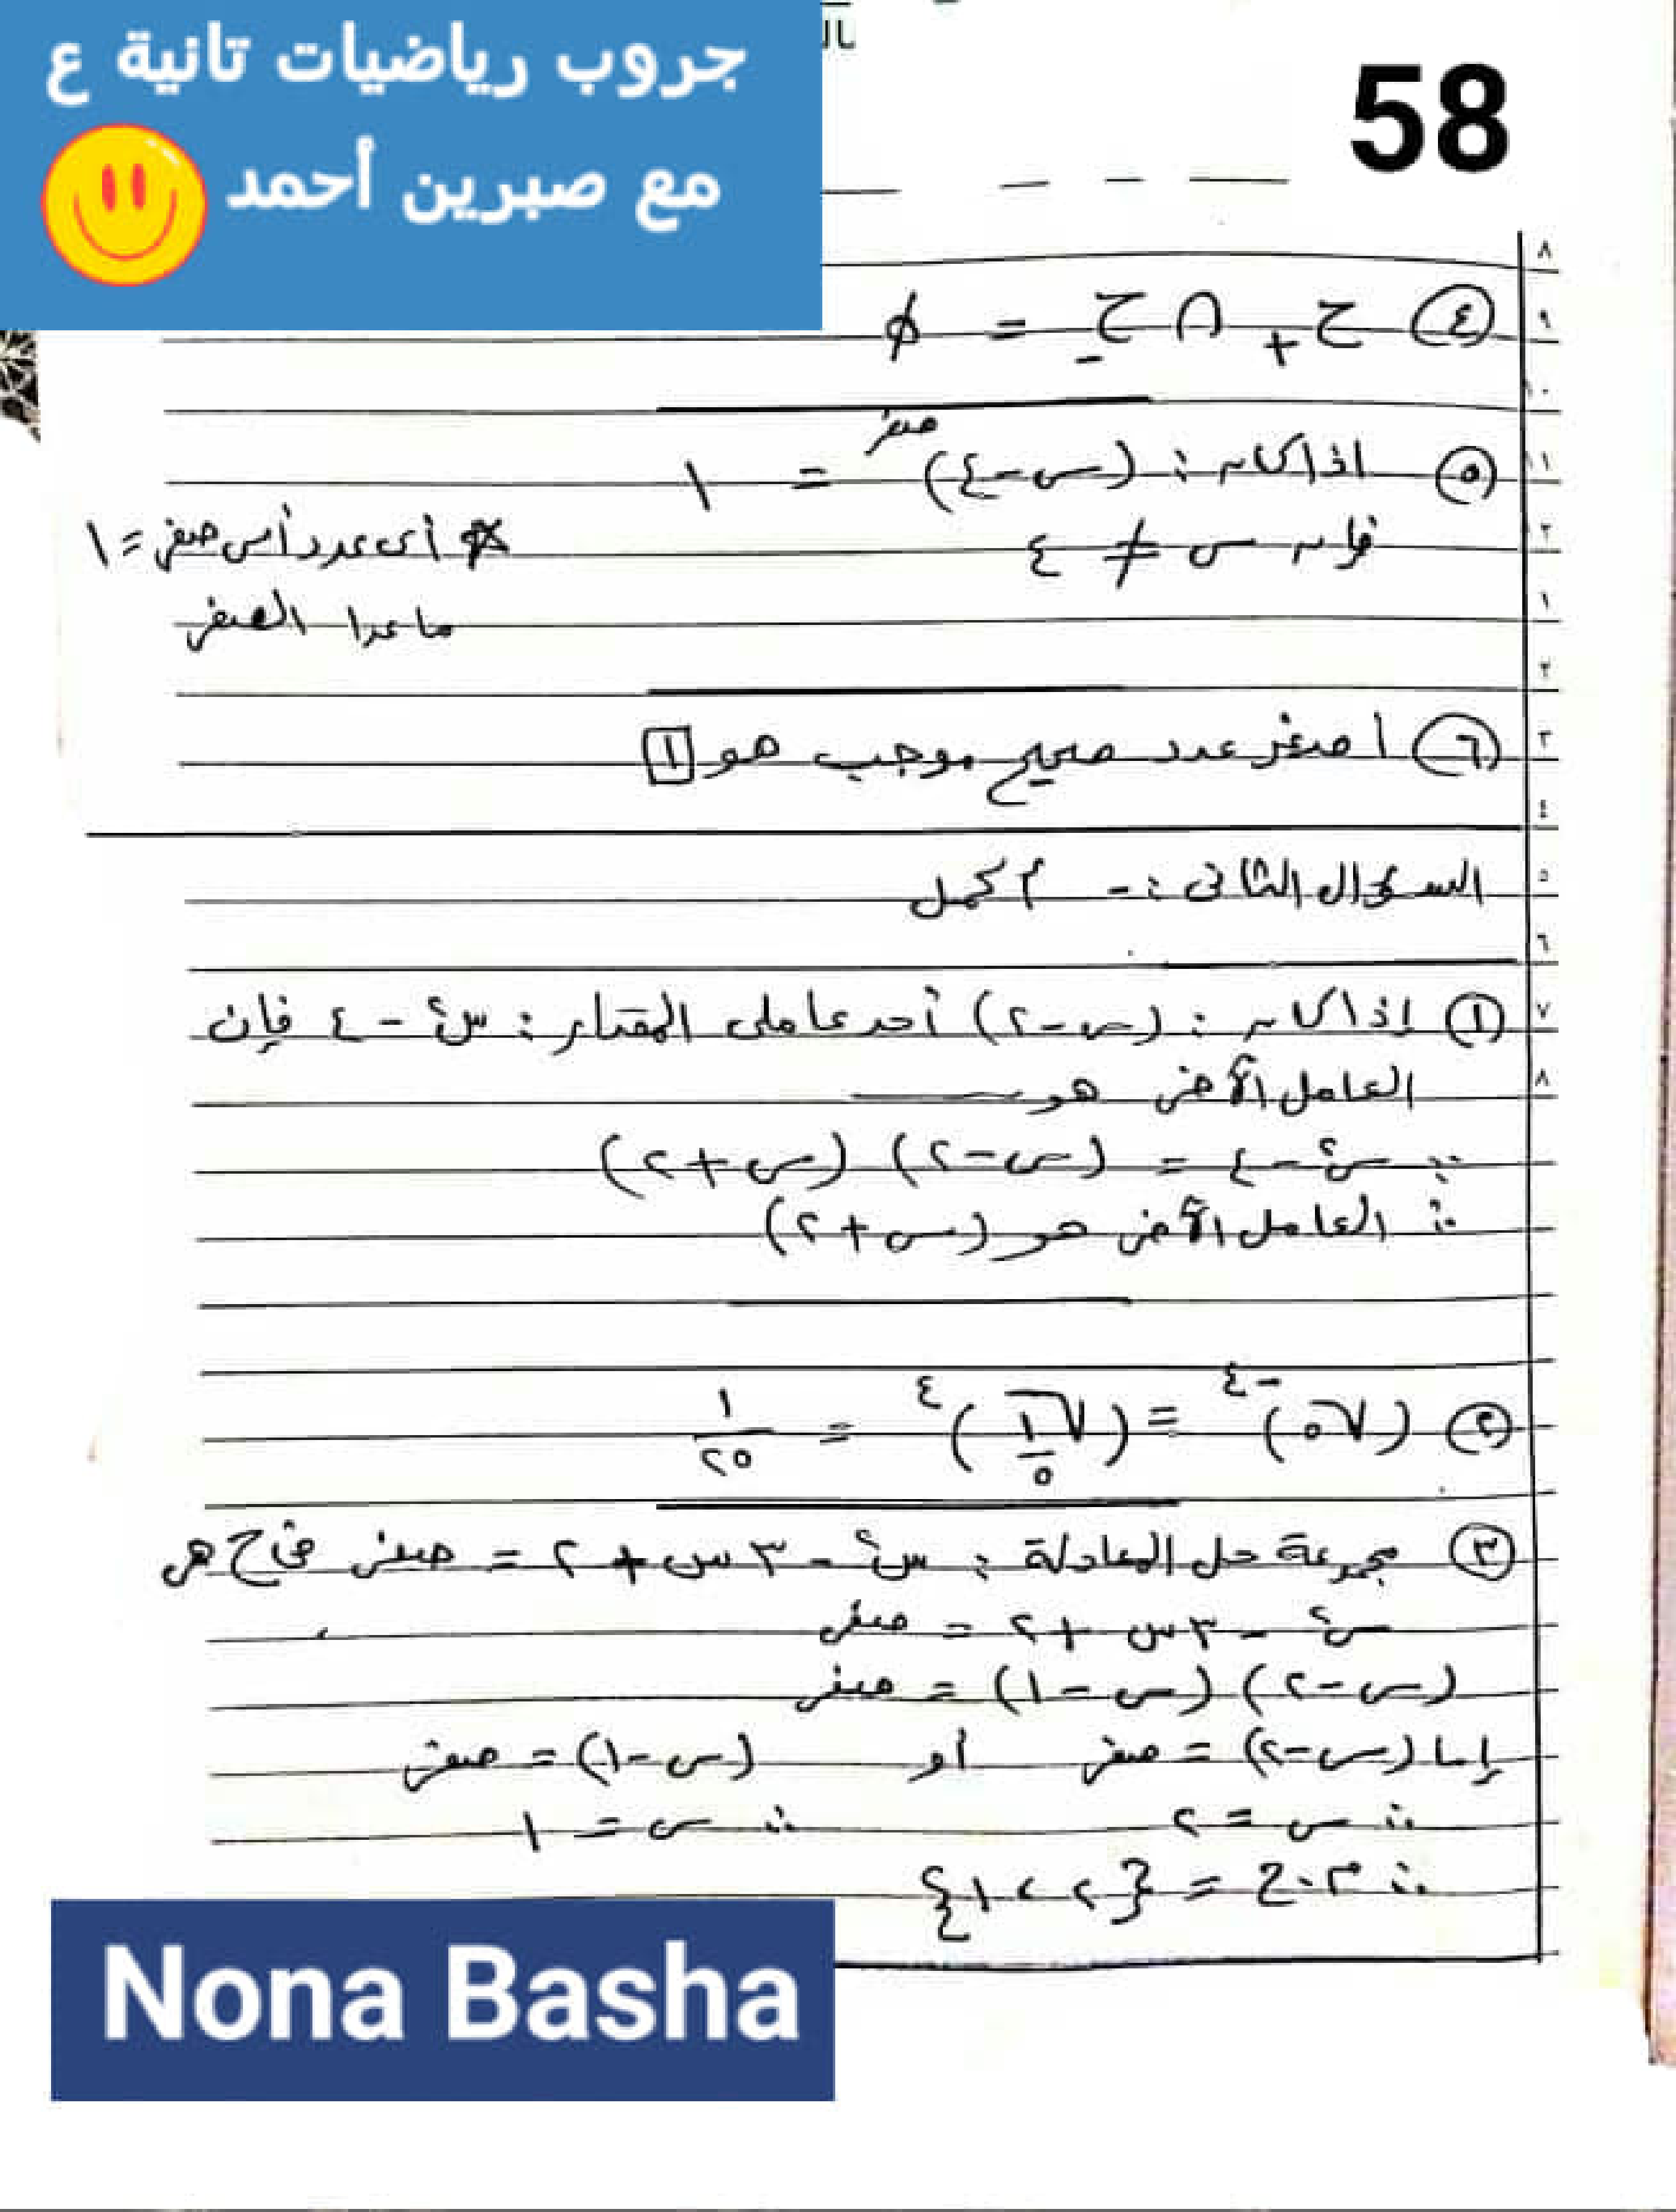 جروب رياضيات تانية ع
مع صبرين أحمد
58
٤ ح+ ∩ ح- = ϕ
٥ اذا كان : (س-٤)صفر = ١
فإن س ≠ ٤
* أى عدد أس صفر = ١
ماعدا الصفر
٦ أصغر عدد صحيح موجب هو ١
السؤال الثانى :- أكمل
١ إذا كان : (س-٢) أحد عاملى المقدار : س٢ - ٤ فإن
العامل الآخر هو ـــــ
∵ س٢ - ٤ = (س-٢) (س+٢)
∴ العامل الآخر هو (س+٢)
٢ (√٥)-٤ = (√١/٥)٤ = ١/٢٥
٣ مجموعة حل المعادلة : س٢ - ٣س + ٢ = صفر فى ح هى
س٢ - ٣س + ٢ = صفر
(س-٢) (س-١) = صفر
إما (س-٢) = صفر أو (س-١) = صفر
∴ س = ٢ ∴ س = ١
∴ م.ح = {٢ ، ١}
Nona Basha